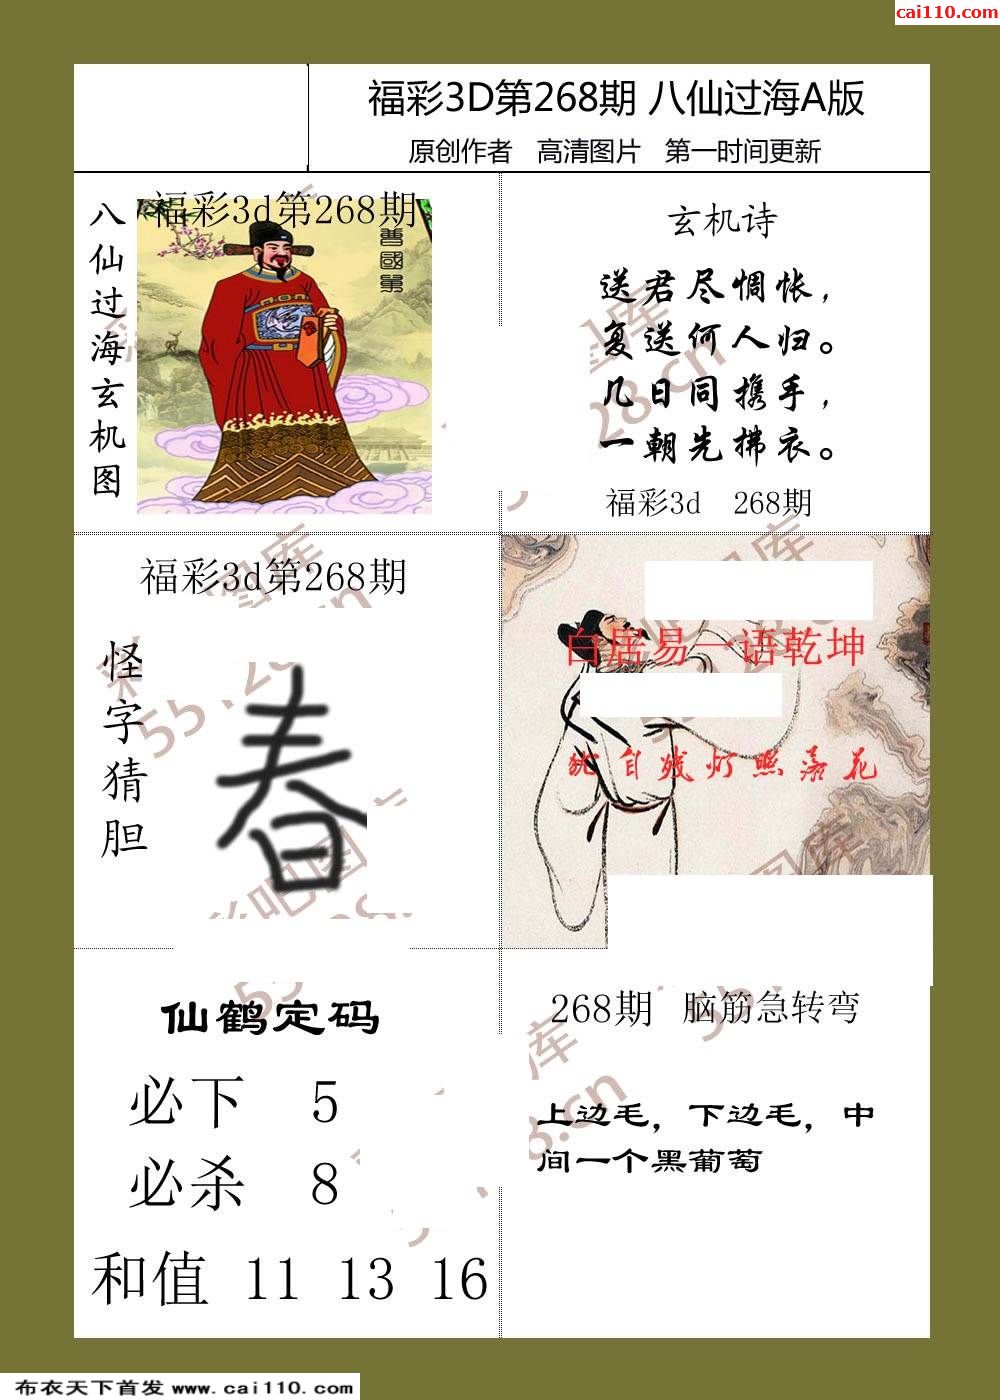 cai110.com
福彩3D第268期 八仙过海A版
原创作者 高清图片 第一时间更新
八仙过海玄机图
福彩3d第268期
曹國舅
玄机诗
送君尽惆怅，
复送何人归。
几日同携手，
一朝先拂衣。
福彩3d 268期
福彩3d第268期
怪字猜胆
春
白居易一语乾坤
犹自残灯照落花
仙鹤定码
必下 5
必杀 8
和值 11 13 16
268期 脑筋急转弯
上边毛，下边毛，中
间一个黑葡萄
布衣天下首发 www.cai110.com